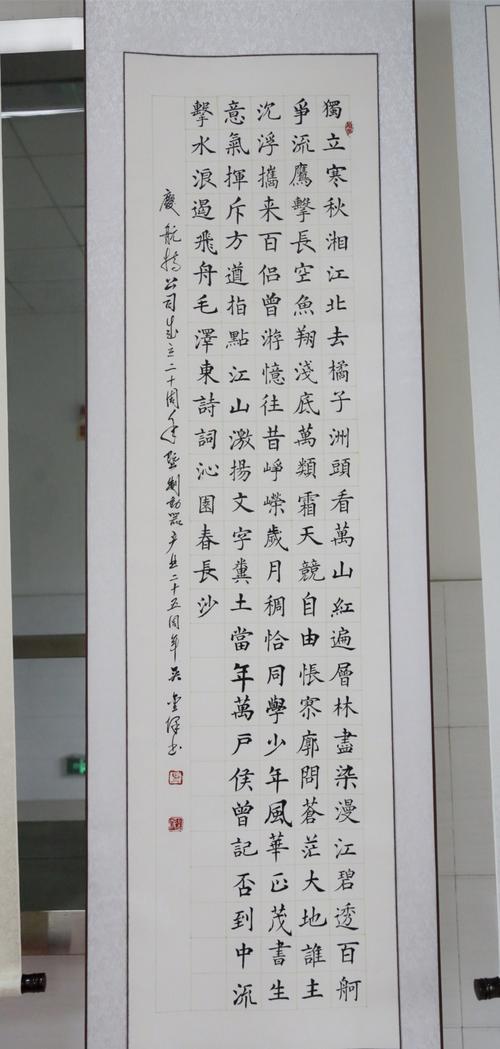 獨立寒秋湘江北去橘子洲頭看萬山紅遍層林盡染漫江碧透百舸
爭流鷹擊長空魚翔淺底萬類霜天競自由悵寥廓問蒼茫大地誰主
沉浮攜来百侶曾游憶往昔崢嶸歲月稠恰同學少年風華正茂書生
意氣揮斥方遒指點江山激揚文字糞土當年萬戶侯曾記否到中流
擊水浪遏飛舟毛澤東詩詞沁園春長沙
慶航特公司成立二十周年暨制動器产业二十五周年吴书